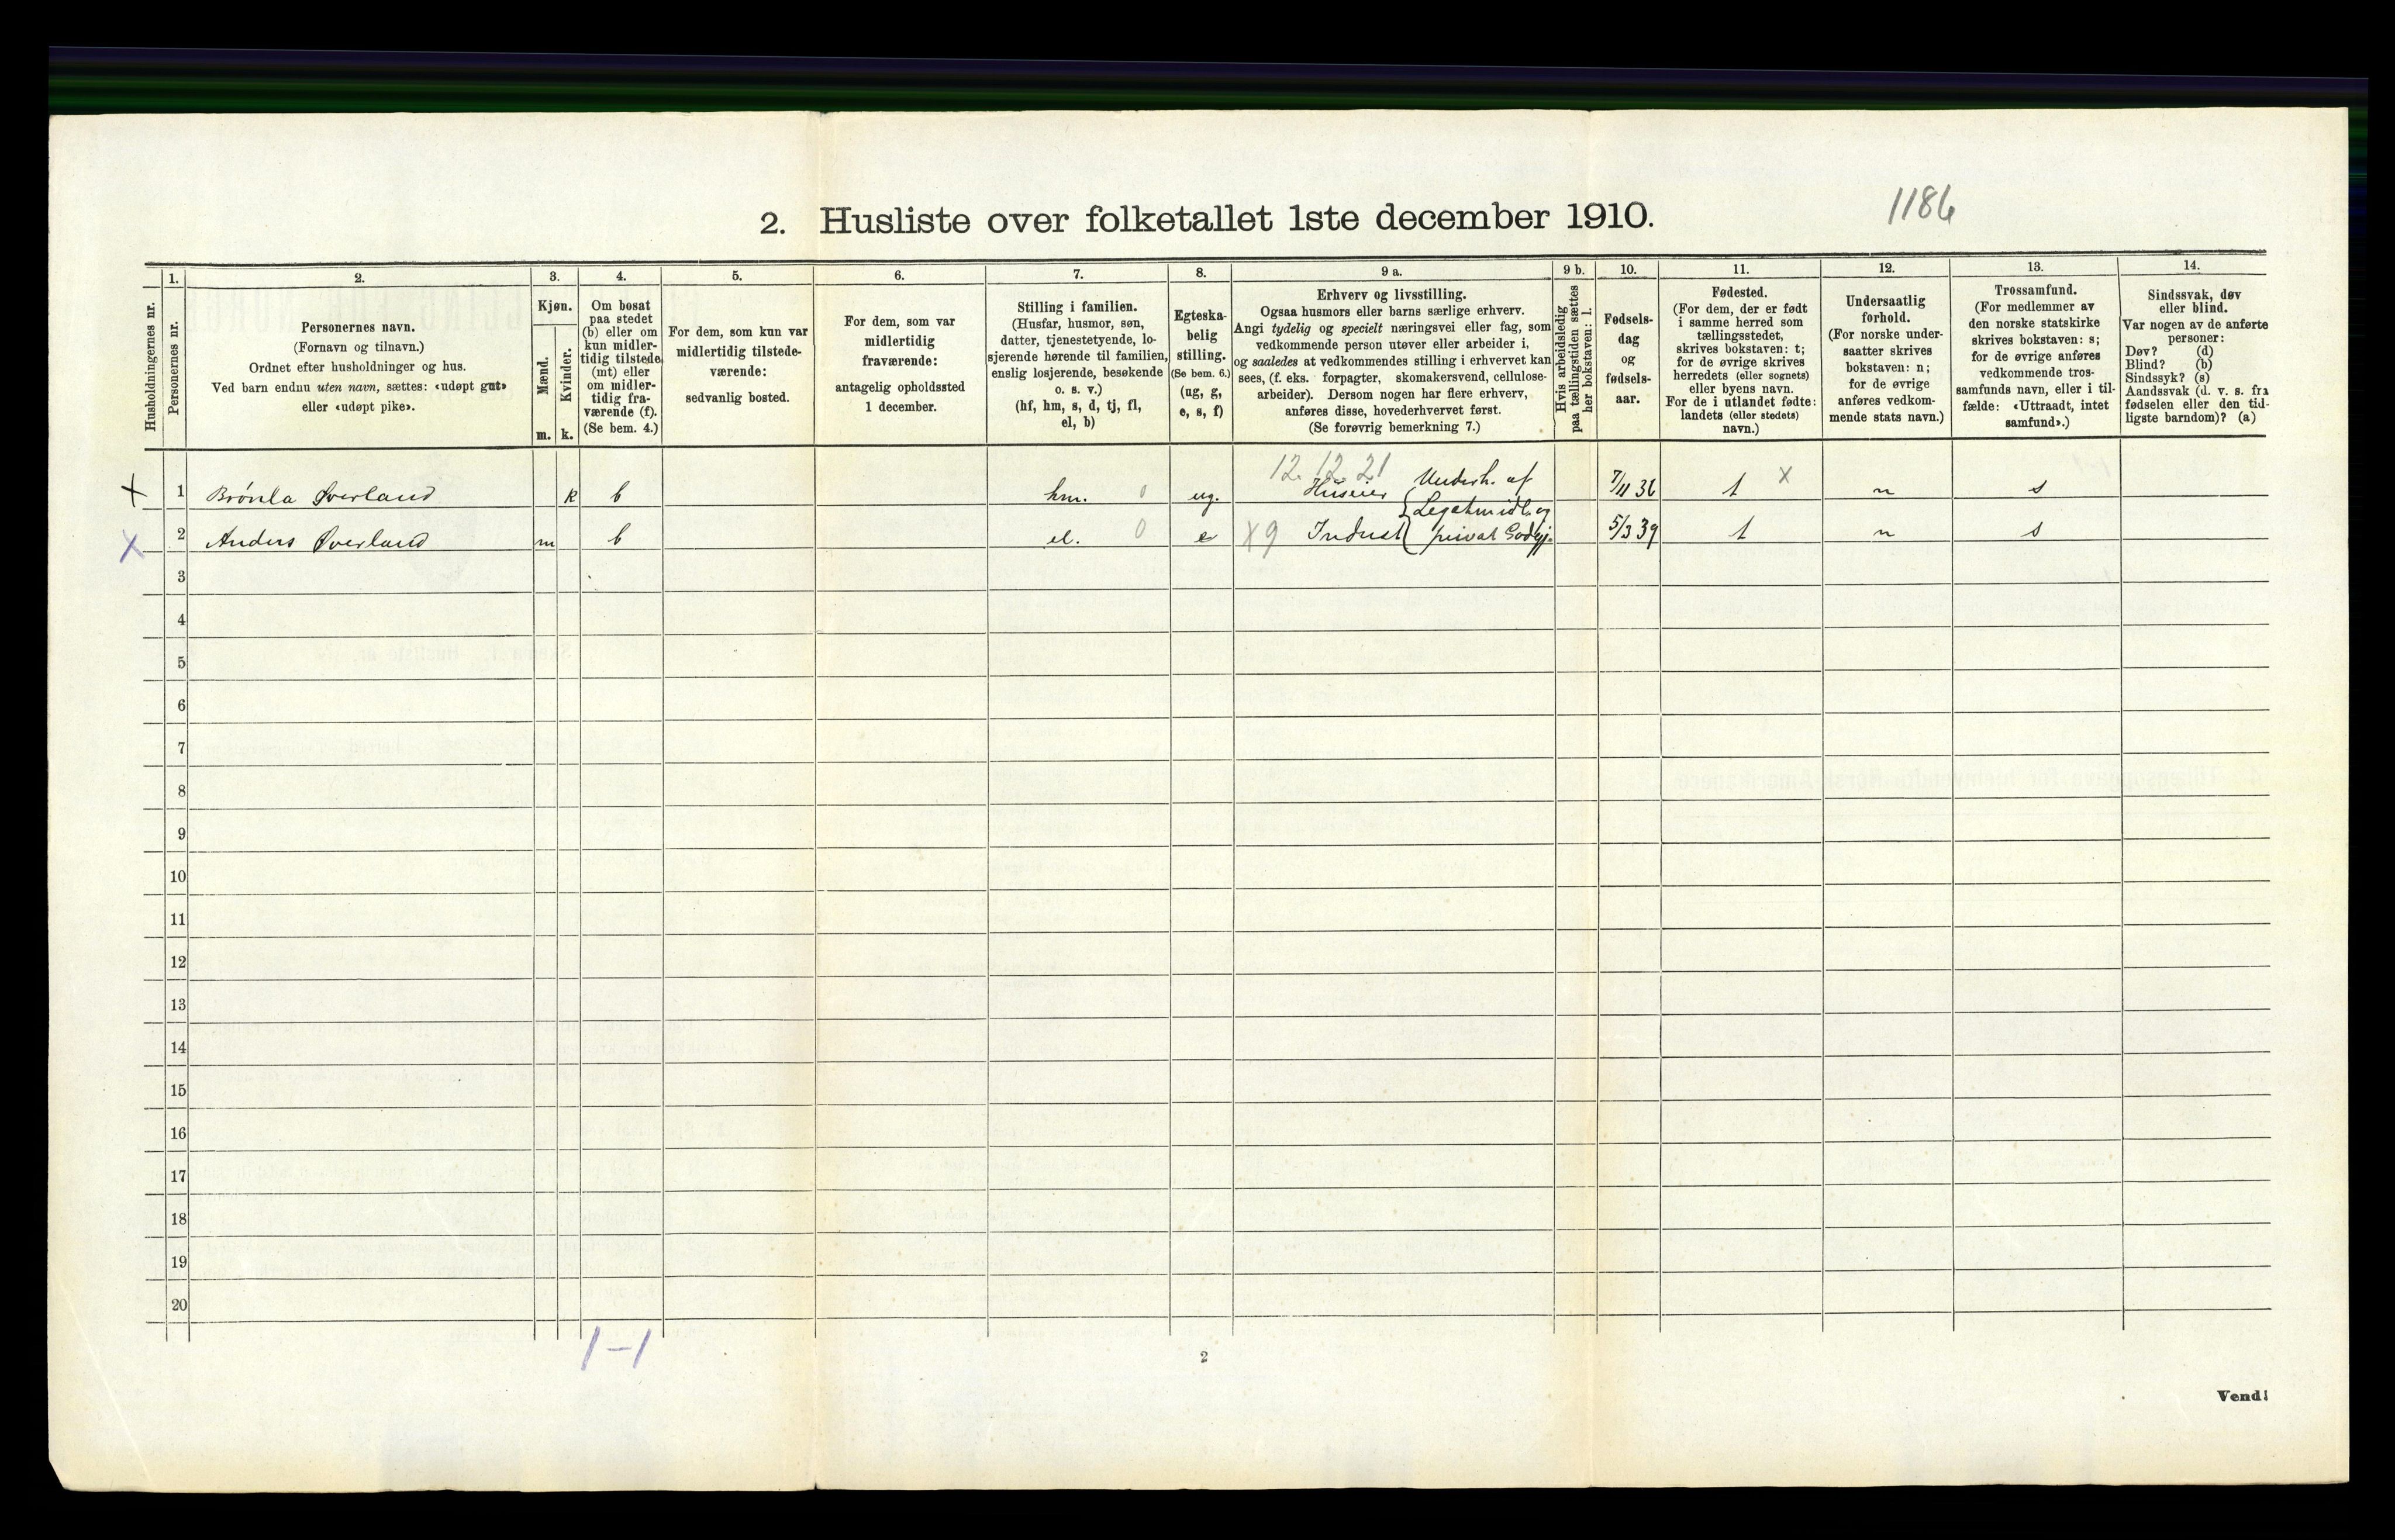 1186
2. Husliste over folketallet 1ste december 1910.
Husholdningernes nr.
1.
Personernes nr.
2.
Personernes navn.
(Fornavn og tilnavn.)
Ordnet efter husholdninger og hus.
Ved barn endnu uten navn, sættes: «udøpt gut»
eller «udøpt pike».
3.
Kjøn.
Mænd.
Kvinder.
m. k.
4.
Om bosat
paa stedet
(b) eller om
kun midler-
tidig tilstede
(mt) eller
om midler-
tidig fra-
værende (f).
(Se bem. 4.)
5.
For dem, som kun var
midlertidig tilstede-
værende:
sedvanlig bosted.
6.
For dem, som var
midlertidig
fraværende:
antagelig opholdssted
1 december.
7.
Stilling i familien.
(Husfar, husmor, søn,
datter, tjenestetyende, lo-
sjerende hørende til familien,
enslig losjerende, besøkende
o. s. v.)
(hf, hm, s, d, tj, fl,
el, b)
8.
Egteska-
belig
stilling.
(Se bem. 6.)
(ug, g,
e, s, f)
9 a.
Erhverv og livsstilling.
Ogsaa husmors eller barns særlige erhverv.
Angi tydelig og specielt næringsvei eller fag, som
vedkommende person utøver eller arbeider i,
og saaledes at vedkommendes stilling i erhvervet kan
sees, (f. eks. forpagter, skomakersvend, cellulose-
arbeider). Dersom nogen har flere erhverv,
anføres disse, hovederhvervet først.
(Se forøvrig bemerkning 7.)
9 b.
Hvis arbeidsledig
paa tællingstiden sættes
her bokstaven: l.
10.
Fødsels-
dag
og
fødsels-
aar.
11.
Fødested.
(For dem, der er født
i samme herred som
tællingsstedet,
skrives bokstaven: t;
for de øvrige skrives
herredets (eller sognets)
eller byens navn.
For de i utlandet fødte:
landets (eller stedets)
navn.)
12.
Undersaatlig
forhold.
(For norske under-
saatter skrives
bokstaven: n;
for de øvrige
anføres vedkom-
mende stats navn.)
13.
Trossamfund.
(For medlemmer av
den norske statskirke
skrives bokstaven: s;
for de øvrige anføres
vedkommende tros-
samfunds navn, eller i til-
fælde: «Uttraadt, intet
samfund».)
14.
Sindssvak, døv
eller blind.
Var nogen av de anførte
personer:
Døv? (d)
Blind? (b)
Sindssyk? (s)
Aandssvak (d. v. s. fra
fødselen eller den tid-
ligste barndom)? (a)
12.12.21
x 1 Brønla Øverland k b hm. 0 ug. Huseier { Underh. af 7/11 36 t x n s
Legatmidl. og
x 2 Anders Øverland m b el. 0 e x9 Inderst { privat Godgj. 5/3 39 t n s
3
4
5
6
7
8
9
10
11
12
13
14
15
16
17
18
19
20
1-1
2
Vend!